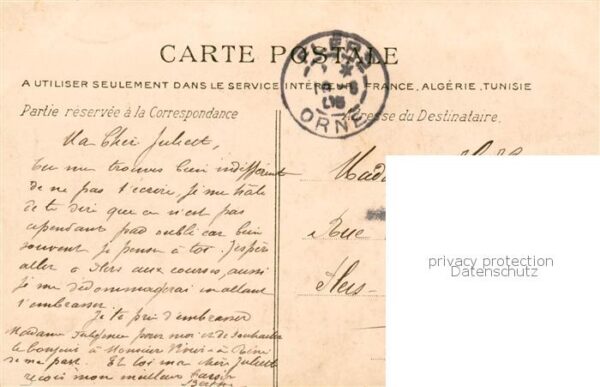 CARTE POSTALE
A UTILISER SEULEMENT DANS LE SERVICE INTÉRIEUR FRANCE, ALGÉRIE, TUNISIE
Partie réservée à la Correspondance
Adresse du Destinataire.
ORNE
Ma Cher Juliett,
tu me trouves bien indifférent
de ne pas t'écrire, je me hâte
de te dire que ce n'est pas
cependant pas oubli car bien
souvent je pense à toi. J'espère
aller à Flers aux courses, aussi
je me dédommagerai en allant
t'embrasser.
Je te prie d'embrasser
Madame pour moi et de souhaiter
le bonjour à Monsieur
de ma part. Et toi ma cher Juliett
reçois mon meilleur baiser
Berthe
Madame
Rue
Flers-
privacy protection
Datenschutz